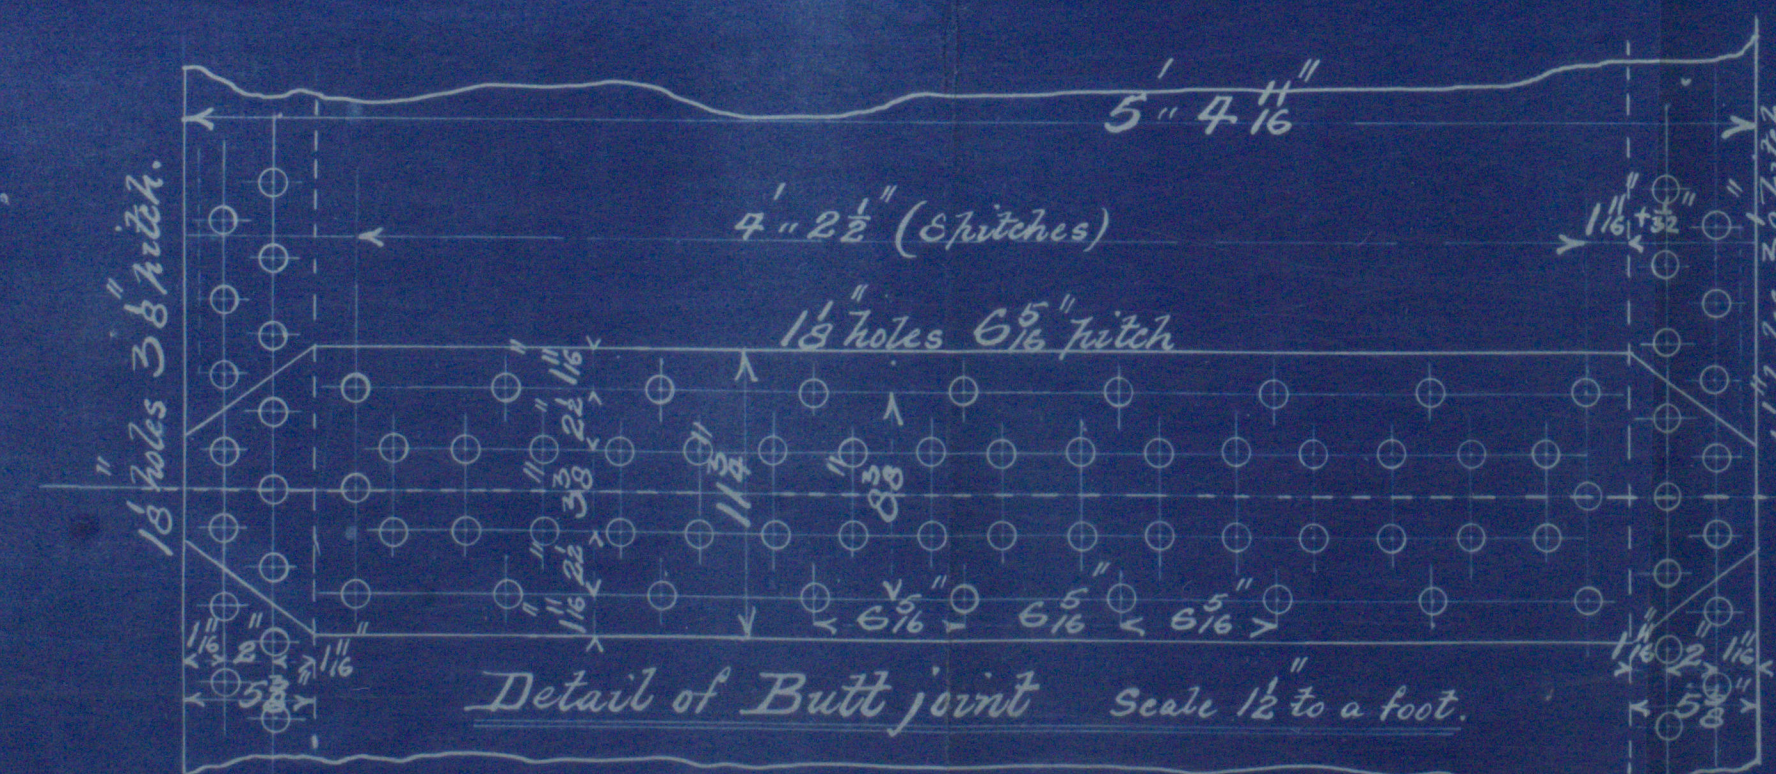 5' 4 11/16"
4' 2 1/2" (8 pitches)
1 11/16" + 1/32"
1 1/8" holes 6 5/16" pitch
1 1/8" holes 3 1/8" pitch.
1 11/16"
2 1/2"
3 3/8"
2 1/2"
1 11/16"
11 3/4"
8 3/8"
6 5/16" 6 5/16" 6 5/16"
1 11/16" 2" 1 11/16"
5 3/8"
1 11/16" 2" 1 11/16"
5 3/8"
Detail of Butt joint Scale 1 1/2" to a foot.